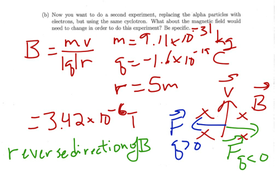 (b) Now you want to do a second experiment, replacing the alpha particles with
electrons, but using the same cyclotron. What about the magnetic field would
need to change in order to do this experiment? Be specific.
B = mv / |q|r
m = 9.11×10^-31 kg
q = -1.6×10^-19 C
r = 5m
= 3.42×10^-6 T
reverse direction of B
v
B
F
q>0
F
q<0